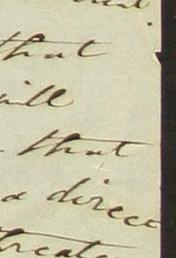 that
will
that
a direct